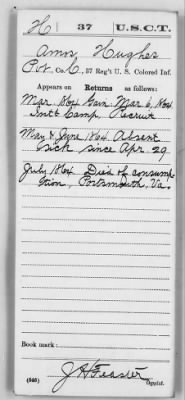 H | 37 | U.S.C.T.
Amos Hughes
Pvt, Co. C, 37 Reg't U. S. Colored Inf.
Appears on Returns as follows:
Mar. 1864 Gain Mar. 6, 1864
Camp, Recruit
May & June 1864 Absent
sick since Apr. 29
July 1864 Died of consump
tion, Portsmouth, Va.
Book mark:
J H Feaster
(546) Copyist.